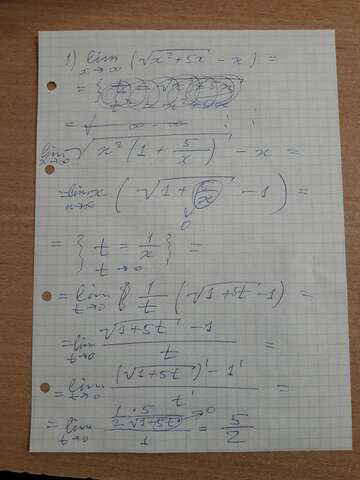 1) lim x→∞ (√(x²+5x) - x) =
= {
= √ ∞ - ∞
lim x→∞ √(x²(1 + 5/x)) - x =
= lim x→∞ x (√(1 + 5/x) - 1) =
0
= { t = 1/x } =
t→0
= lim t→0 { 1/t (√(1+5t) - 1) =
= lim t→0 (√(1+5t) - 1)/t =
= lim t→0 ((√(1+5t))' - 1')/t' =
= lim t→0 ((1·5)/(2√(1+5t)))/1 = 5/2
→0